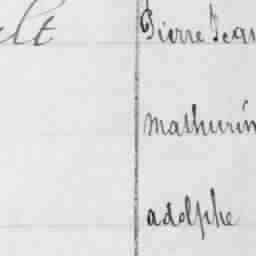 elt Pierre Jean
Mathurin
adolphe